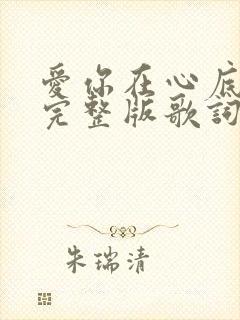 爱你在心底
完整版歌詞
朱瑞清